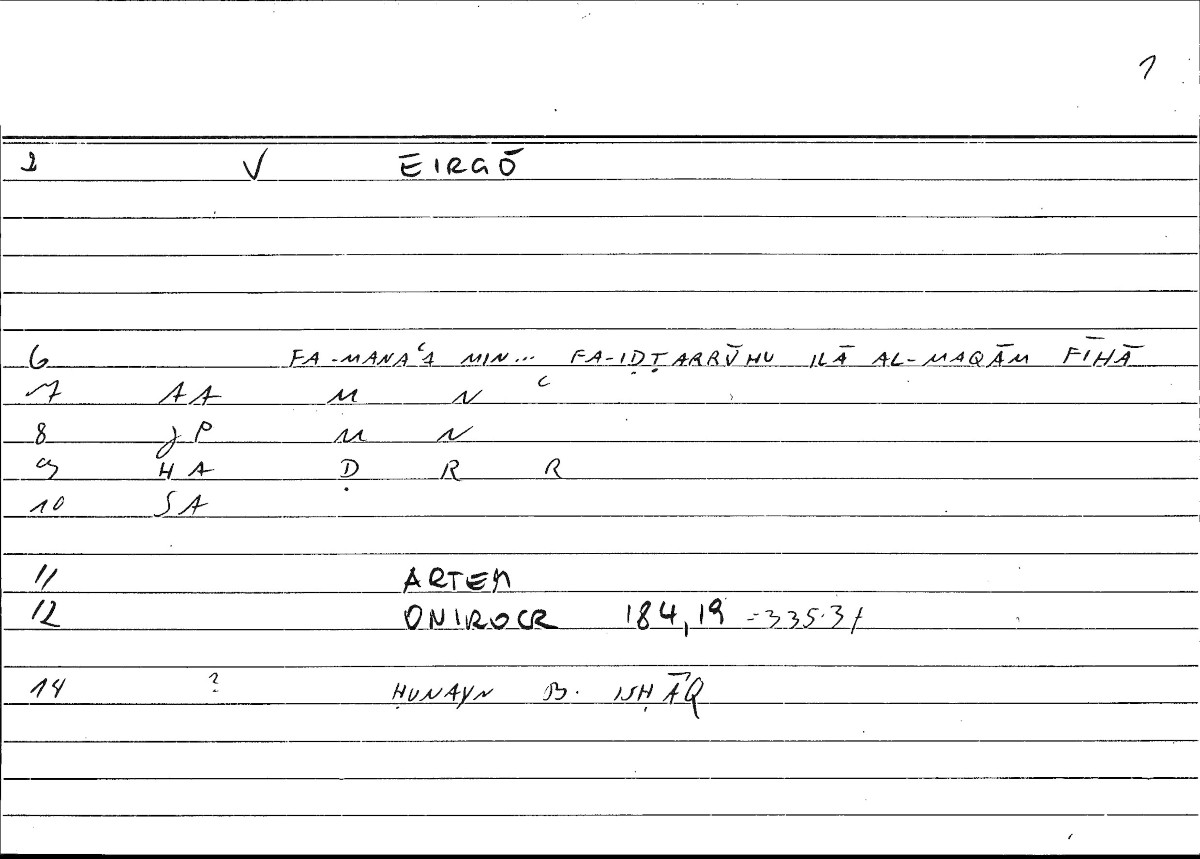 1
1 V ĒIRGŌ
6 FA-MANAʿA MIN... FA-IḌṬARRŪHU ILĀ AL-MAQĀM FĪHĀ
7 AA M N ʿ
8 JP M N
9 HA Ḍ R R
10 SA
11 ARTEM
12 ONIROCR 184,19 =335.3f
14 ? ḤUNAYN B. ISḤĀQ